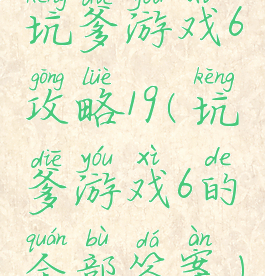 kēng diē yóu xì
坑爹游戏6
gōng lüè kēng
攻略19(坑
diē yóu xì de
爹游戏6的
quán bù dá àn
全部答案)